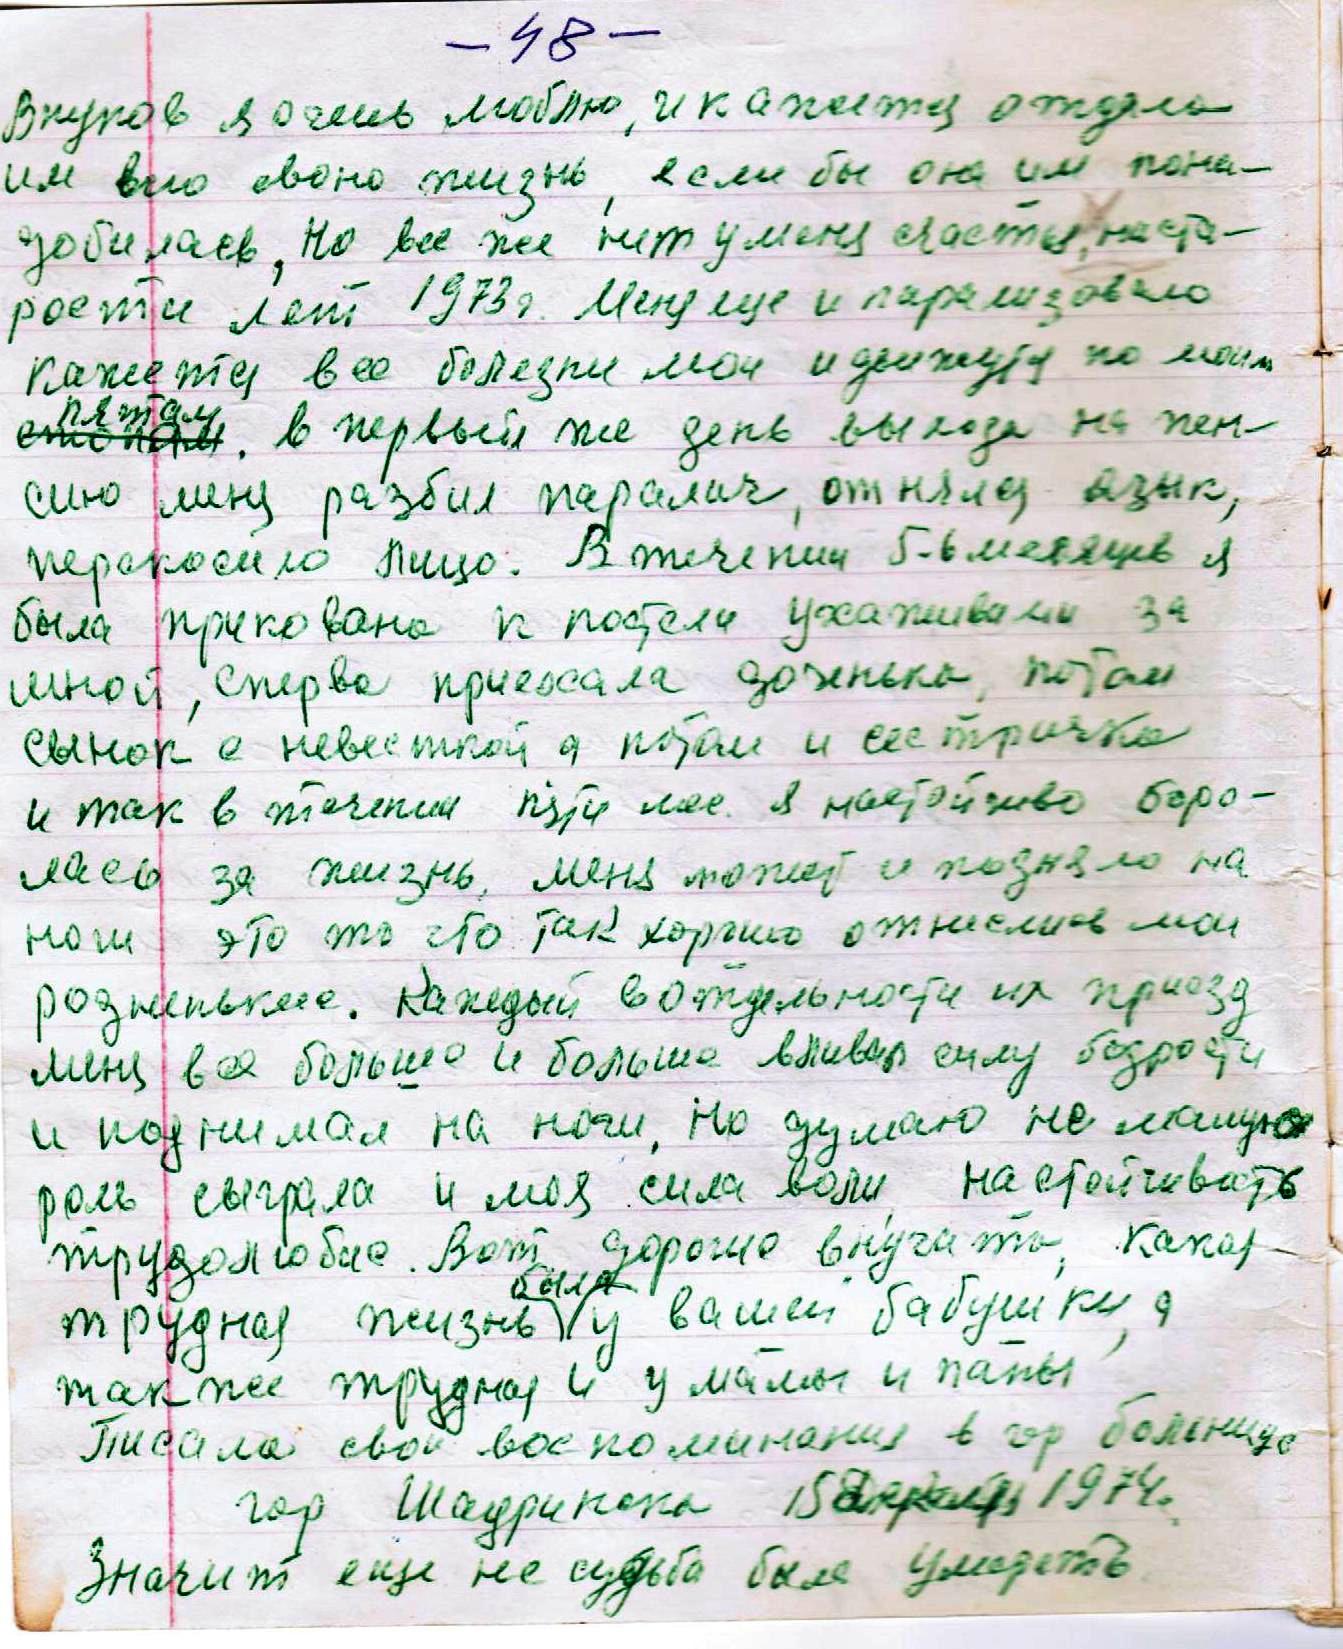 - 48 -
Внуков я очень люблю, и кажется отдала
им всю свою жизнь, если бы она им пона-
добилась, Но все же нит у меня счастья, на ста-
рости лет 1973г. Меня еще и парализовало
кажется все болезни мои и движутя по моим
пятам
стопам. в первый же день выхода на пен-
сию меня разбил паралич, отнялся язык,
перекосило лицо. В течении 5-6 месяцев я
была прикована к постели ухаживали за
мной, сперва приехала доченька, потом
сынок с невесткой а потом и сестричка
и так в течении пяти мес. я настойчиво боро-
лась за жизнь, меня может и подняло на
ноги это то что так хорошо отнеслись мои
родненькие. Каждый в отдельности их приезд
меня все больше и больше вливал силу бодрости
и поднимал на ноги, Но думаю не малую
роль сыграла и моя сила воли, настойчивость
трудолюбие. Вот дорогие внучата, какая
была
трудная жизнь у вашей бабушки, а
так же трудная и у мамы и папы
Писала свои воспоминания в гор больнице
гор Шадринска 15 1974г.
Значит еще не судьба была умереть